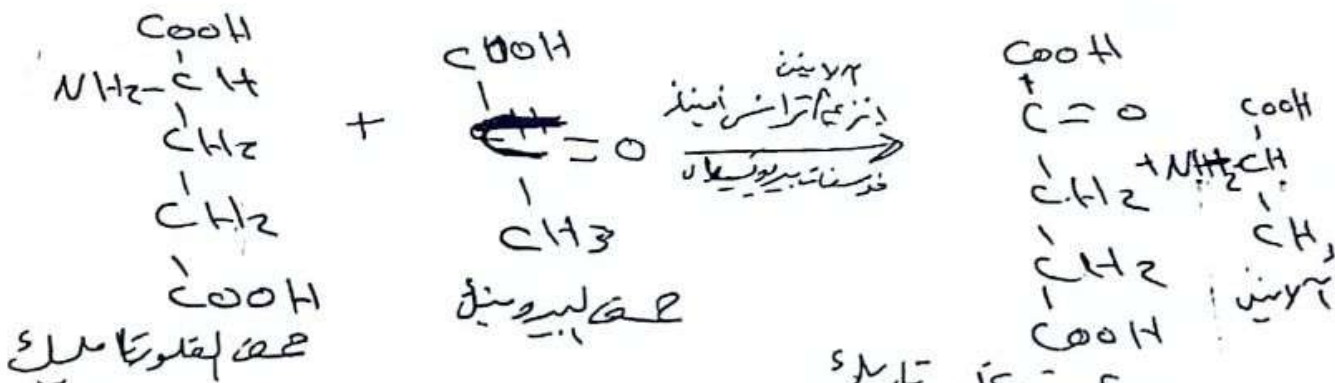 COOH
NH2-CH
CH2
CH2
COOH
حمض الغلوتاميك
+
COOH
C=O
CH3
حمض البيروفيك
آلانين
أنزيم ترانس أميناز
فوسفات بيريدوكسال
COOH
C=O
CH2
CH2
COOH
+
COOH
NH2-CH
CH3
آلانين